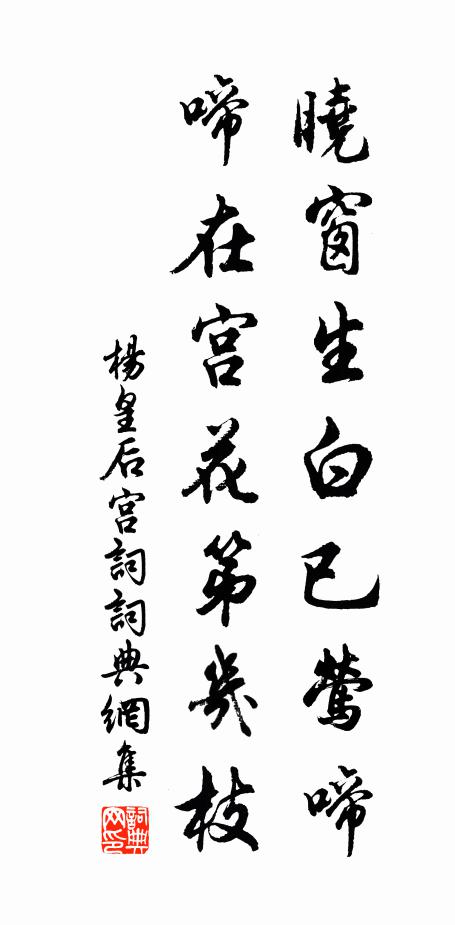 曉窗生白已鶯啼
啼在宮花第幾枝
楊皇后宮詞詞典網集
詞典网印